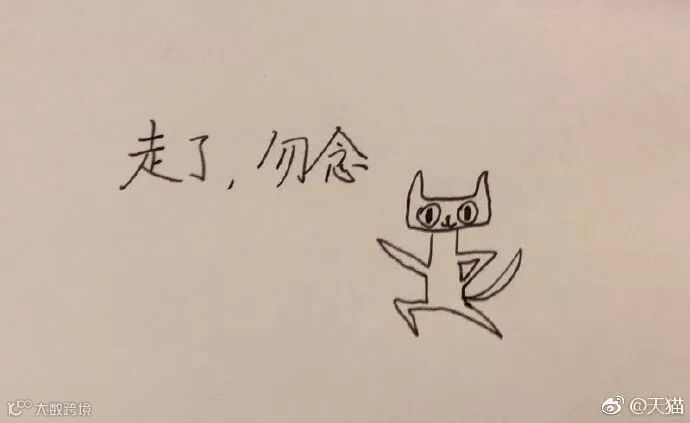 走了，勿念
大数跨境
@天猫